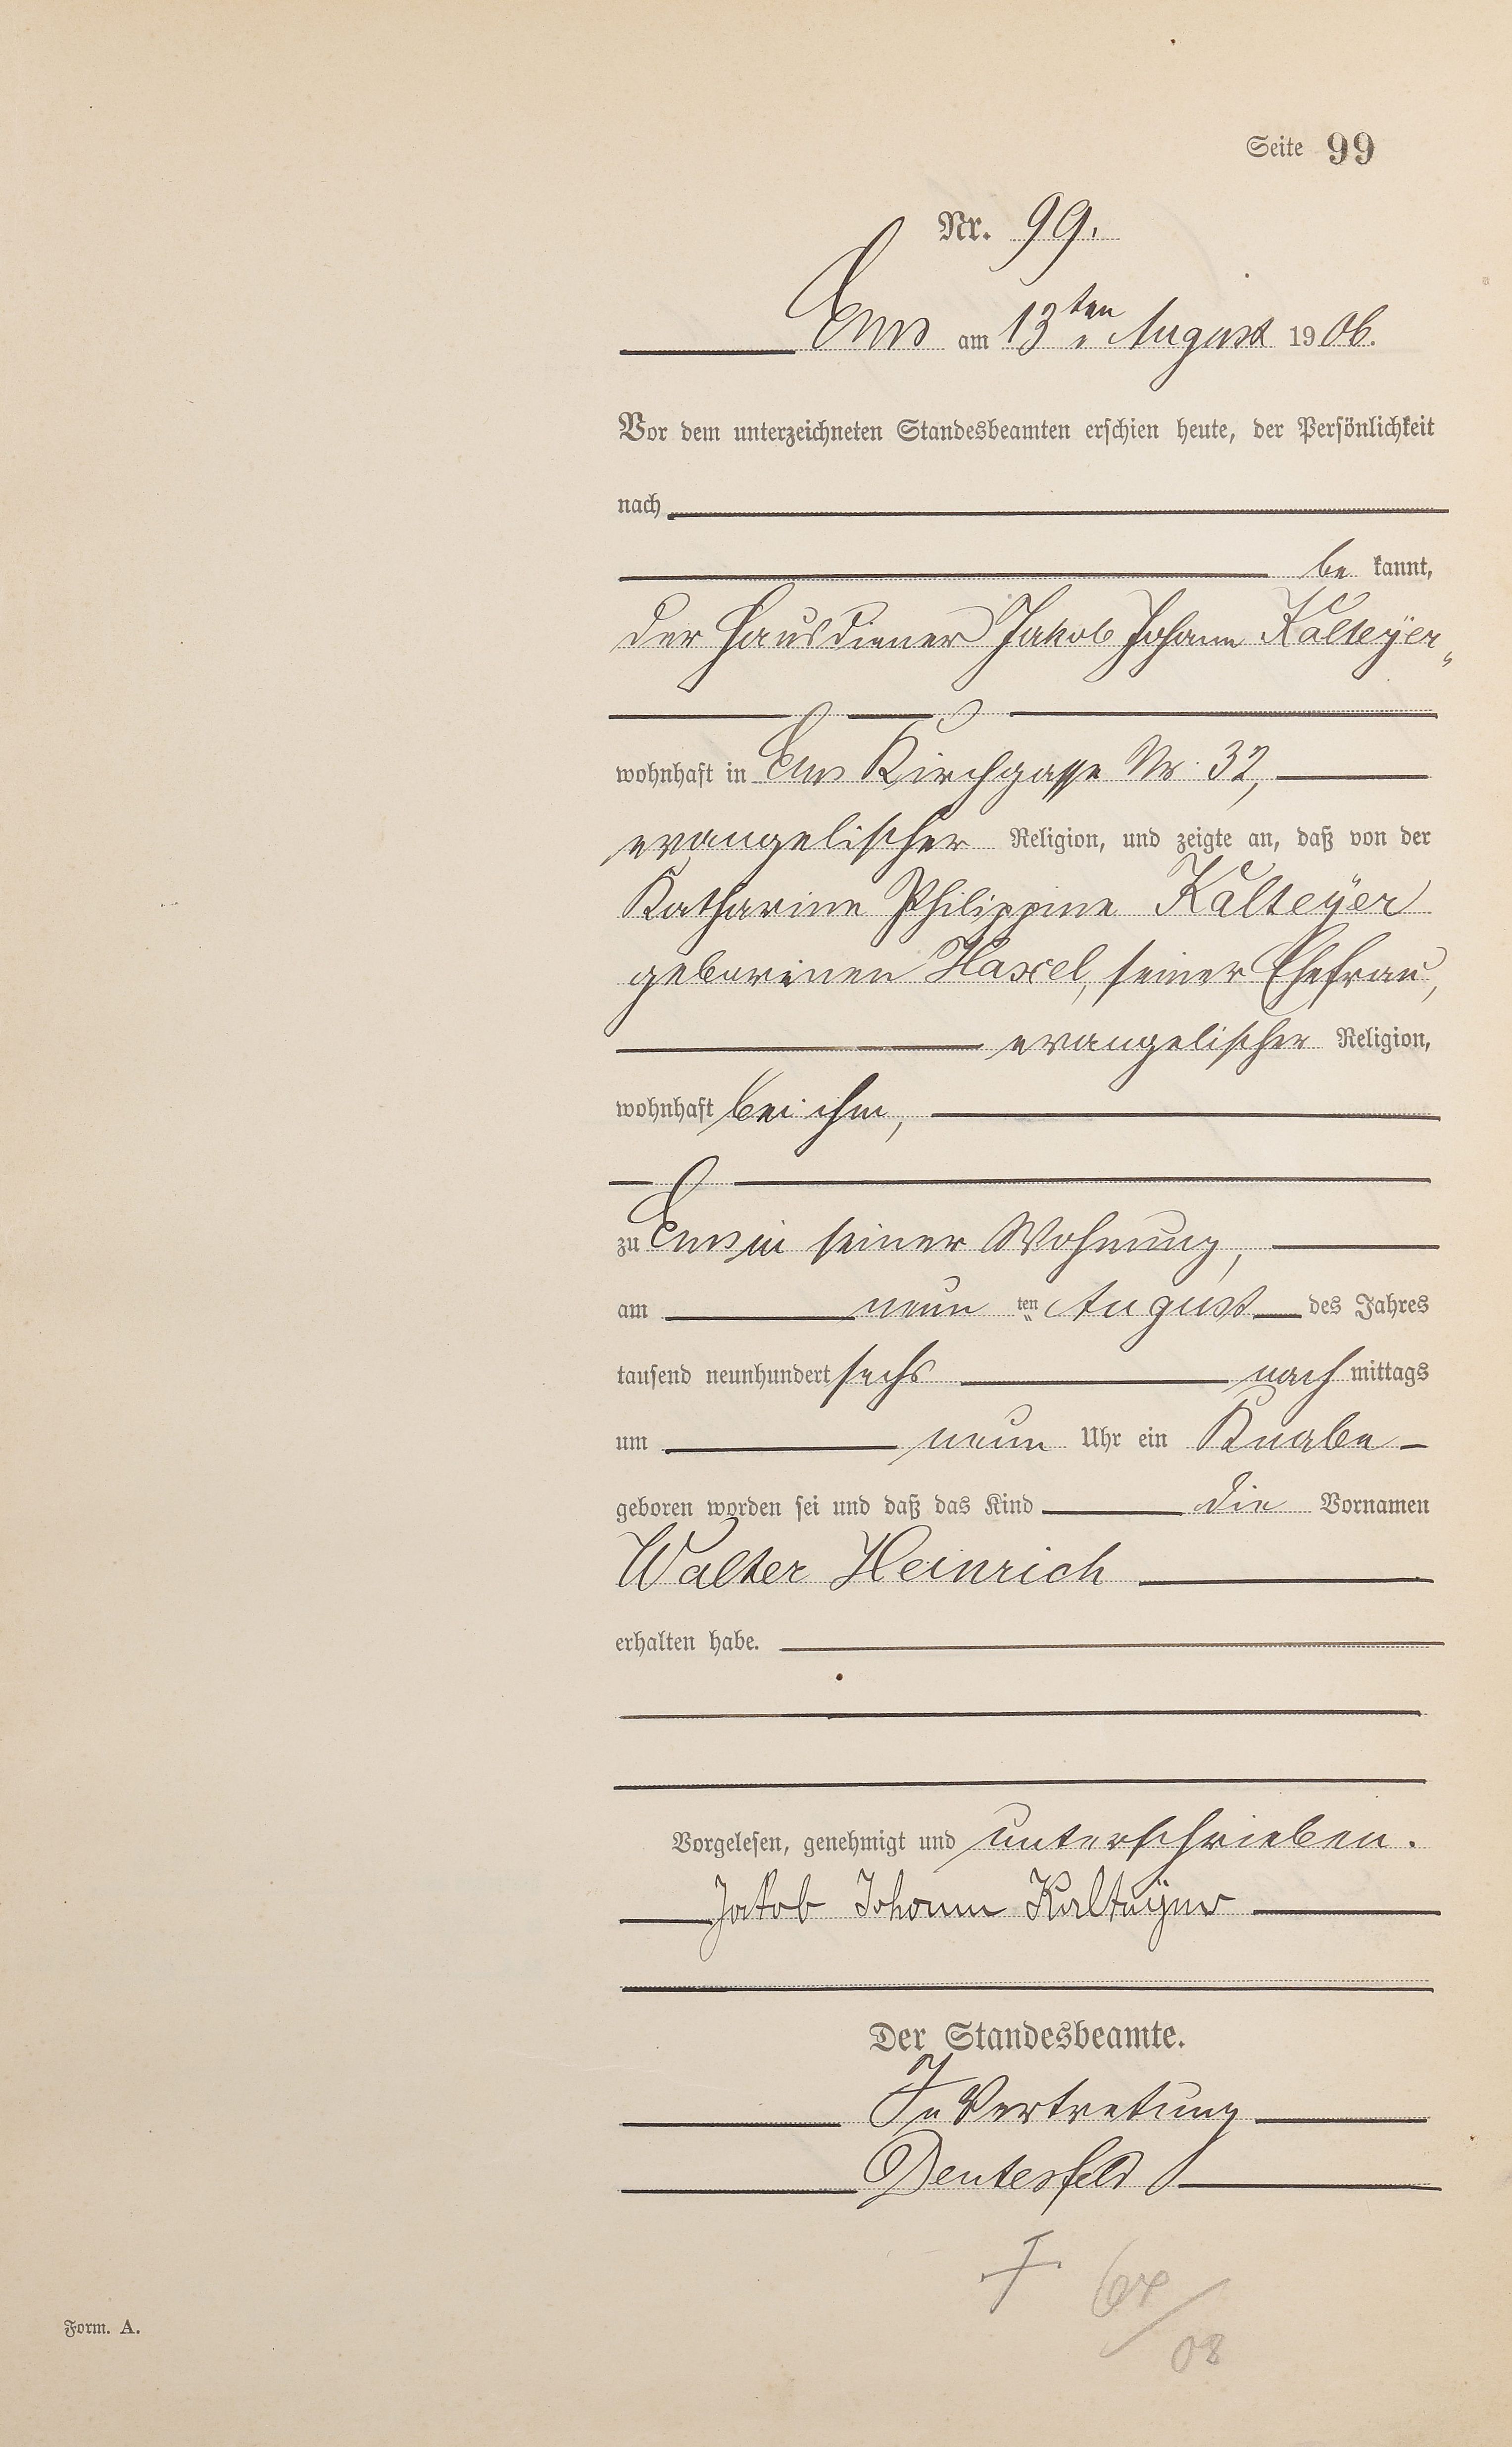 Seite 99
Nr. 99.
Ems am 13ten August 1906.
Vor dem unterzeichneten Standesbeamten erschien heute, der Persönlichkeit
nach
be kannt,
der Hausdiener Jakob Johann Kalteyer,
wohnhaft in Ems Kirchgasse Nr. 32,
evangelischer Religion, und zeigte an, daß von der
Katharine Philippine Kalteyer
geborenen Haxel, seiner Ehefrau,
evangelischer Religion,
wohnhaft bei ihm,
zu Ems in seiner Wohnung,
am neun ten August des Jahres
tausend neunhundert sechs nach mittags
um neun Uhr ein Knabe
geboren worden sei und daß das Kind die Vornamen
Walter Heinrich
erhalten habe.
Vorgelesen, genehmigt und unterschrieben.
Jakob Johann Kalteyer
Der Standesbeamte.
In Vertretung
Deutesfeld
Form. A.